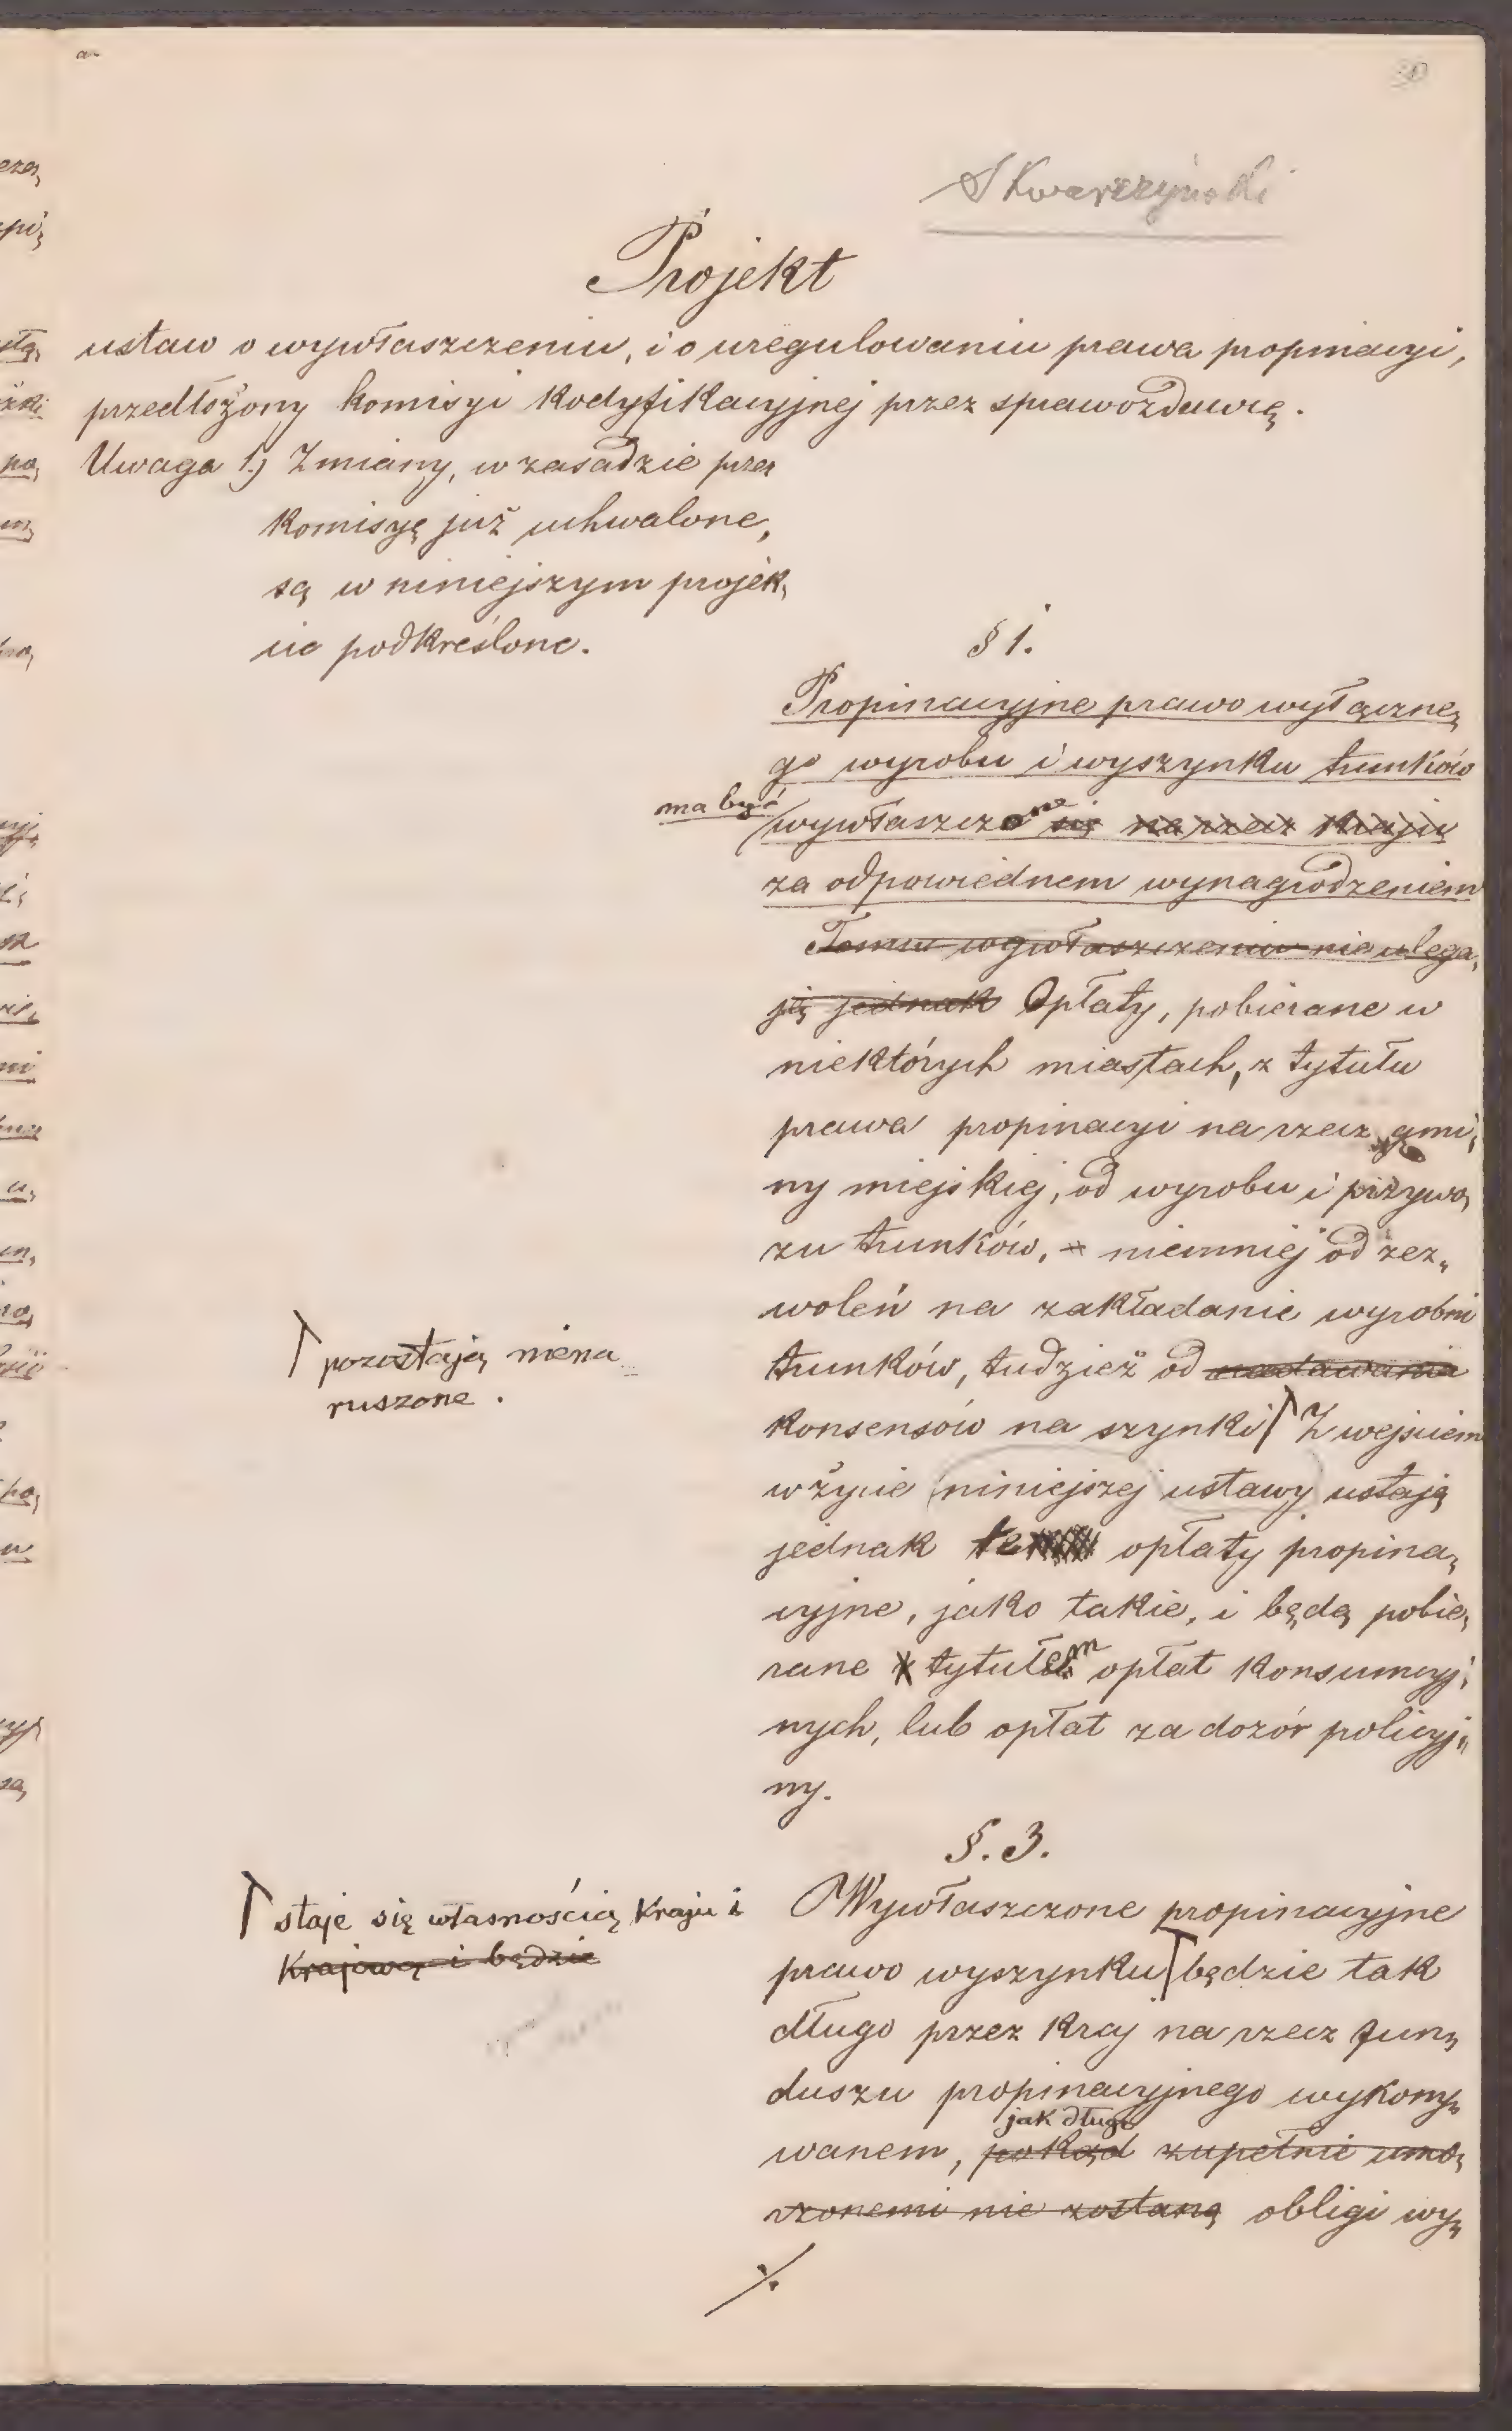 Skwarczyński
Projekt
ustaw o wywłaszczeniu, i o uregulowaniu prawa propinacyi,
przedłożony komisyi kodyfikacyjnej przez sprawozdawcę.
Uwaga 1.) Zmiany, w zasadzie przez
komisyę już uchwalone,
są w niniejszym projek„
cie podkreślone.
§ 1.
Propinacyjne prawo wyłączne„
go wyrobu i wyszynku trunków
ma być
wywłaszczone się na rzecz kraju
za odpowiednem wynagrodzeniem
Temu wywłaszczeniu nie ulega„
ją jednak Opłaty, pobierane w
niektórych miastach, z tytułu
prawa propinacyi na rzecz gmi„
ny miejskiej, od wyrobu i przywo„
zu trunków, niemniej od zez„
woleń na zakładanie wyrobni
trunków, tudzież od nadawania
konsensów na szynki Z wejściem
pozostają niena„
ruszone.
w życie niniejszej ustawy ustają
jednak te opłaty propina„
cyjne, jako takie, i będą pobie„
rane tytułem opłat konsumcyj„
nych, lub opłat za dozór policyj„
ny.
§. 3.
Wywłaszczone propinacyjne
prawo wyszynku będzie tak
staje się własnością kraju i
krajową i będzie
długo przez kraj na rzecz fun„
duszu propinacyjnego wykony„
jak długo
wanem, pokąd zupełnie umo„
rzonemi nie zostaną obligi wy„
./.